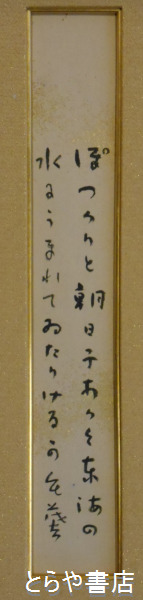 ぽつかりと朝日子あかく東海の
水にうまれてゐたりけるかも 茂吉
とらや書店